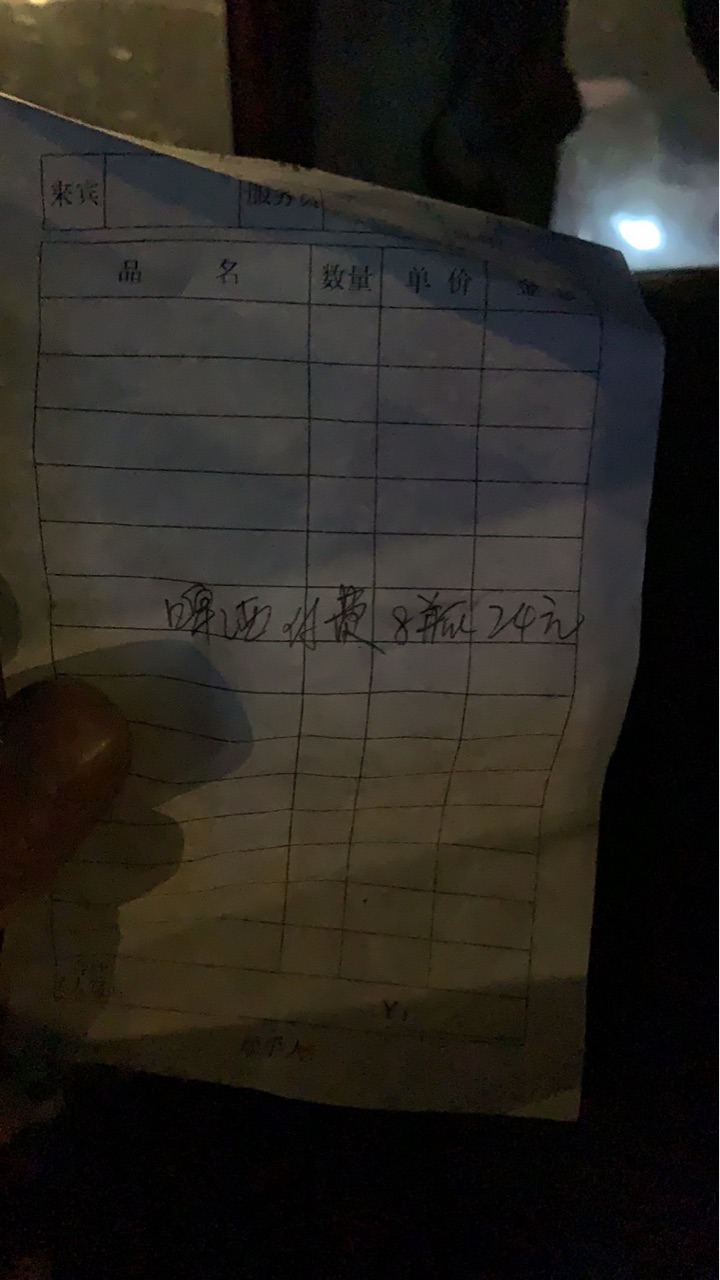 来宾 服务员
品名 数量 单价 金额
啤酒付费 8瓶 24元
¥:
经手人